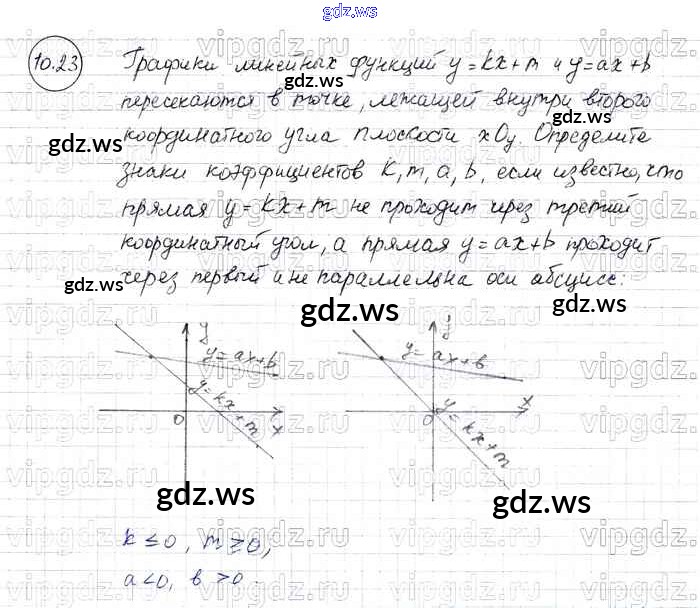 gdz.ws
10.23
Графики линейных функций y=kx+m и y=ax+b
gdz.ws
пересекаются в точке, лежащей внутри второго
gdz.ws
координатного угла плоскости xOy. Определите
gdz.ws
знаки коэффициентов k, m, a, b, если известно, что
прямая y=kx+m не проходит через третий
координатный угол, а прямая y=ax+b проходит
через первый и не параллельна оси абсцисс:
gdz.ws gdz.ws gdz.ws
y y
y=ax+b y=ax+b
y=kx+m x
0 x 0 y=kx+m
gdz.ws gdz.ws
k≤0, m≥0,
a<0, b>0.